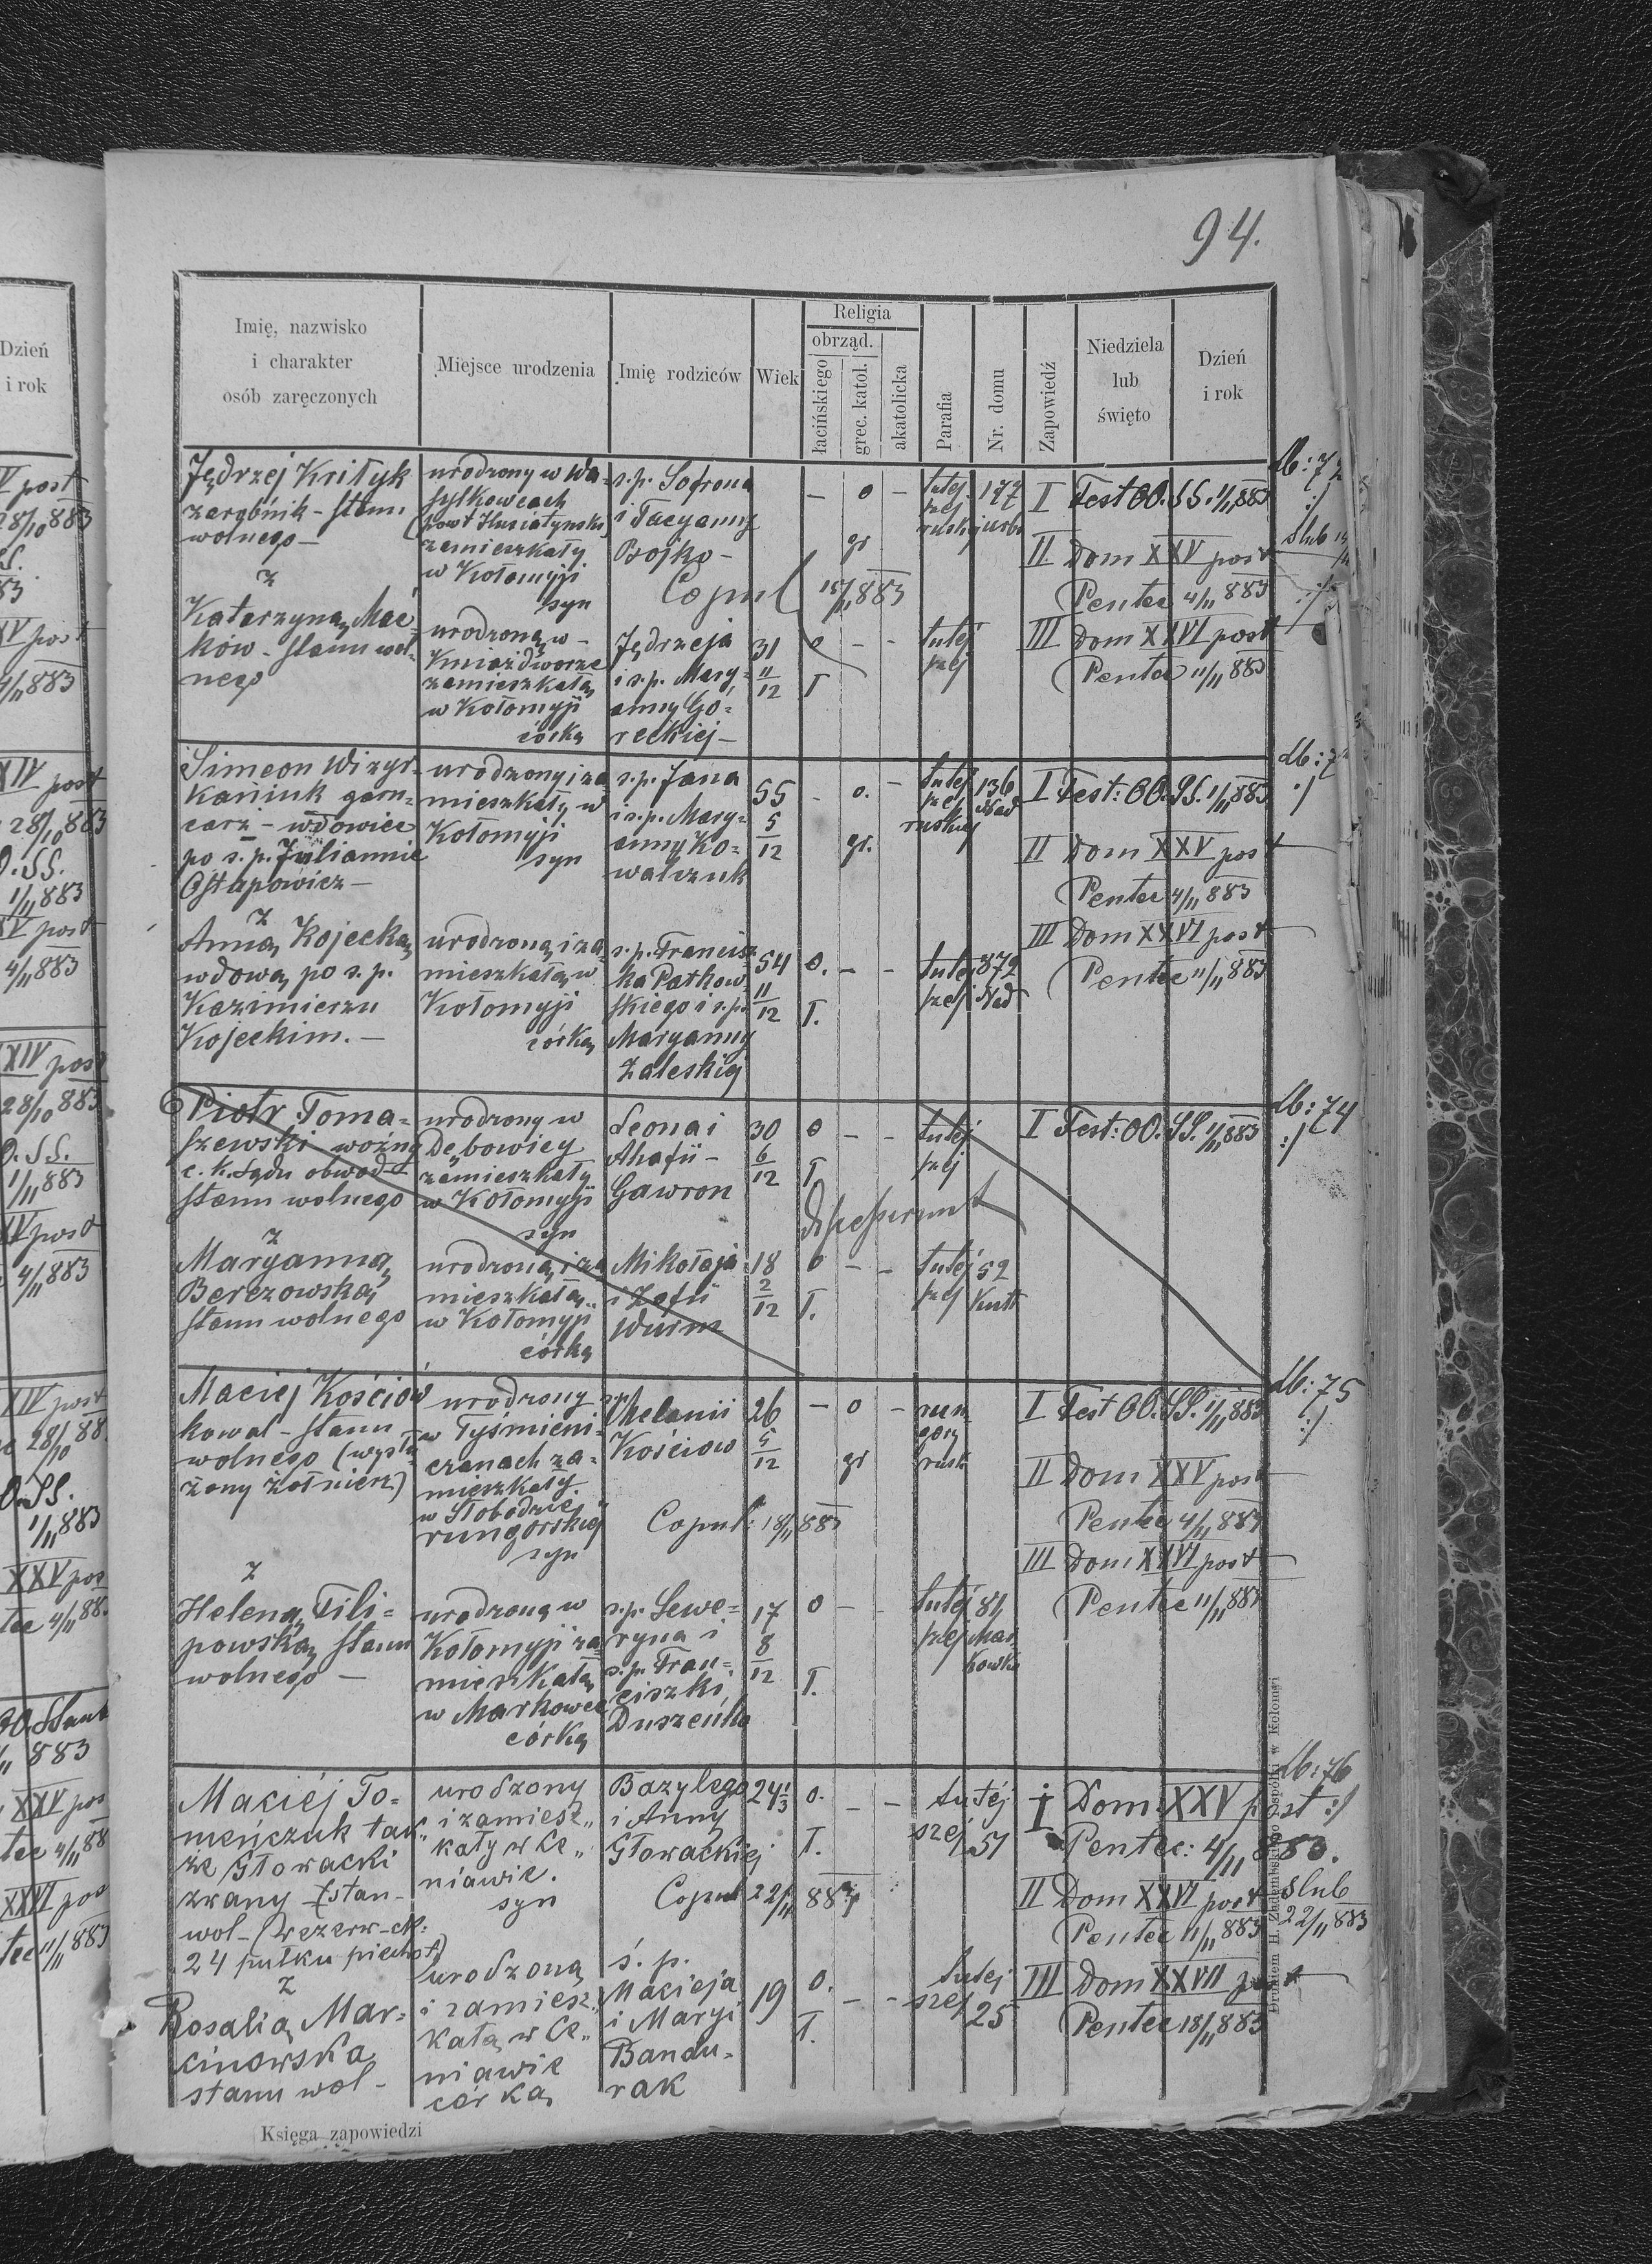 94.
Dzień
i rok
Imię, nazwisko
i charakter
osób zaręczonych
Miejsce urodzenia
Imię rodziców
Wiek
Religia
obrząd.
łacińskiego
grec. katol.
akatolicka
Parafia
Nr. domu
Zapowiedź
Niedziela
lub
święto
Dzień
i rok
Jędrzej Krityk
zarobnik - stanu
wolnego -
z
Katarzyną Mać
ków - stanu wol-
nego
urodzony w Wa-
sylkowcach
(pow. Husiatyński)
zamieszkały
w Kołomyji
syn
urodzoną w -
Kniaźdworze
zamieszkałą
w Kołomyji
córką
s.p. Sofrona
i Tacyanny
Bojko -
Copul 15/11 883
Jędrzeja
i s.p. Mary-
anny Go-
reckiej -
31
11/12
- o -
gr
o - -
T
tutej
szej
ruskiej
177
urbs
tutej
szej
I Fest OO. SS. 1/11 883
II. Dom XXV post
Pentec 4/11 883
III Dom XXVI post
Pentec 11/11 883
:/
Slub
Simeon Wizyr-
kaniuk garn-
carz - wdowiec
po s.p. Juliannie
Ostapowicz -
z
Anną Kojecką
wdową po s.p.
Kazimierzu
Kojeckim. -
urodzony i za
mieszkały w
Kołomyji
syn
urodzoną i za
mieszkałą w
Kołomyji
córką
s.p. Jana
i s.p. Mary-
anny Ko-
walczuk
s.p. Francisz
ka Patkow-
skiego i s.p.
Maryanny
Zaleskiej
55
5/12
54
11/12
- o. -
gr.
o. - -
T.
tutej
szej
ruskiej
136
Nad
tutej
szej
872
Nad
I Fest: OO. SS. 1/11 883
II Dom XXV post
Pentec 4/11 883
III Dom XXVI post
Pentec 11/11 883
:/
Piotr Toma-
szewski woźny
c. k. Sądu obwod
stanu wolnego
z
Maryanną
Berezowską
stanu wolnego
urodzony w
Dębowicy
zamieszkały
w Kołomyji
syn
urodzoną i za
mieszkałą
w Kołomyji
córką
Leona i
Ahafii -
Gawron
Mikołaja
i Zofii
Wurm
30
6/12
18
2/12
o - -
T
o - -
T.
tutej
szej
tutej
szej
52
Kutt
I Fest: OO. SS. 1/11 883
Lb: 74
:/
Maciej Kościów
kowal - stanu
wolnego (wysłu
żony żołnierz)
z
Heleną Fili-
powską stanu
wolnego -
urodzony
w Tyśmieni-
czanach za-
mieszkały
w Słobodzie
rungorskiej
syn
urodzoną w
Kołomyji za-
mieszkałą
w Markowce
córką
Melanii
Kościow
Copul: 18/11 883
s.p. Sewe-
ryna i
s.p. Fran-
ciszki
Duszeńko
26
5/12
17
8/12
- o -
gr
o - -
T.
run
gory
rusk
tutej
szej
81
Mar
kowka
I Fest OO. SS. 1/11 883
II Dom XXV post
Pentec 4/11 883
III Dom XXVI post
Pentec 11/11 883
Lb: 75
:/
Maciéj To-
meńczuk tak
że Głowacki
zwany stan-
wol- (rezerw-ck:
24 pułku piechot)
z
Rosalią Mar-
cinowska
stanu wol-
urodzony
i zamiesz
kały w Ce
niawie.
syn
urodzoną
i zamiesz
kałą w Ce
niawie
córką
Bazylego
i Anny
Głowackiej
Copul 22/11 883
ś. p.
Macieja
i Maryi
Bandu-
rak
24 1/3
19
o. - -
T.
o. - -
T.
tutéj
szej
51
tutej
szej
25
I Dom XXV post
Pentec: 4/11 883.
II Dom XXVI post
Pentec 11/11 883
III Dom XXVII post
Pentec 18/11 883
Lb: 76
:/
Slub
22/11 883
Księga zapowiedzi